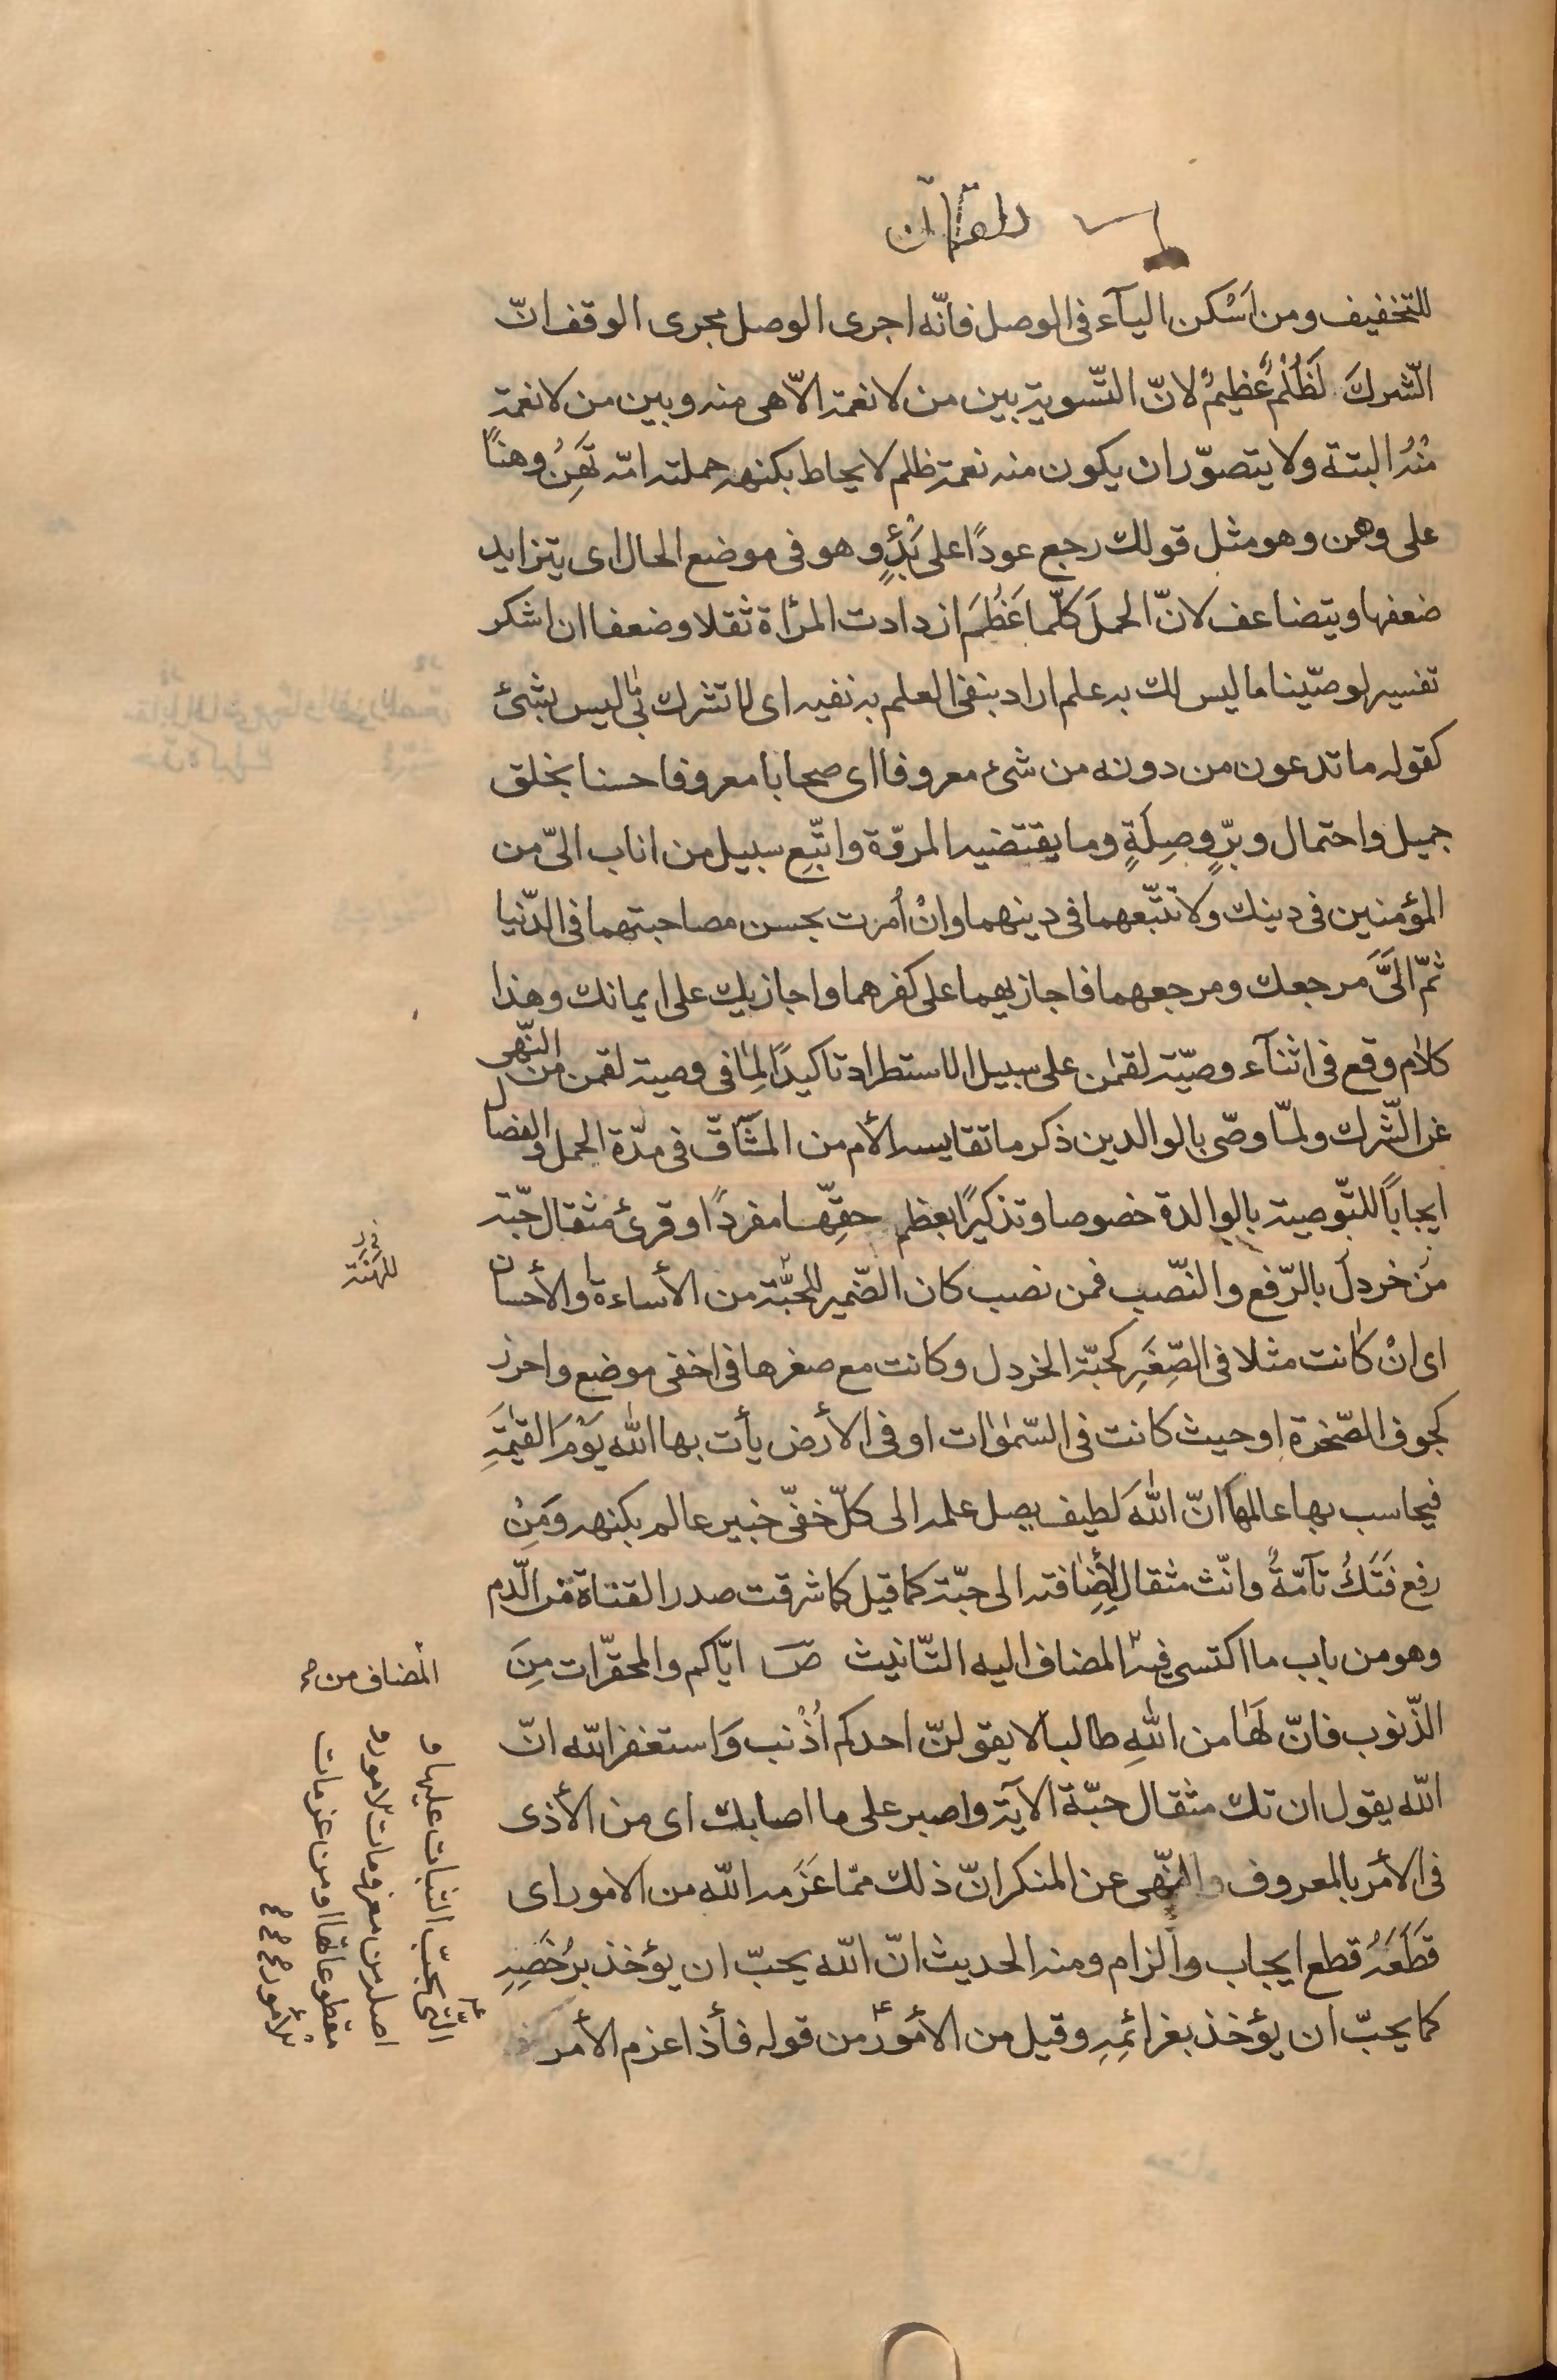 للتخفيف ومن اَسْكن اليآء فى الوصل فانّه اجرى الوصل مجرى الوقف انّ
الّشركَ لَظُلْمٌ عَظيمٌ لانّ التّسوية بين من لا نعمة الاّ هى منه وبين من لا نعمة
مِنْهُ البتة ولا يتصوّر ان يكون منه نعمة ظلم لا يحاط بكنهه حملته امّه تَهِنُ وهنًا
على وهن وهو مثل قولك رجع عودًا على بَدْءٍ وهو فى موضع الحال اى يتزايد
ضعفها ويتضاعف لانّ الحملَ كلّما عَظُمَ ازدادت المرأة ثقلا وضعفا ان اشكر
تفسير لوصّينا ما ليس لك به علم اراد بنفى العلم به نفيه اى لا تشرك بى ليس بشئ
كقوله ما تدعون من دونه من شىء معروفا اى صحابا معروفا حسنا بخلق
جميل واحتمال وبرٍّ وصِلَةٍ وما يقتضيه المروّة واتّبِع سبيل من اناب الىّ من
المؤمنين فى دينك ولا تتّبعهما فى دينهما وانْ اُمرت بحسن مصاحبتهما فى الدّنيا
ثمّ الىَّ مَرجعك ومرجعهما فاجازيهما على كفرهما واجازيك على ايمانك وهذا
كلام وقع فى اثنآء وصيّة لقمٰن على سبيل الاستطراد تاكيدًا لِمٰا فى وصية لقمن من النّهى
عن الّشرك ولمّا وصّى بالوالدين ذكر ما تقايسه الأم من المشٓاقّ فى مدّة الحمل والفصال
ايجابًا للتّوصية بالوالدة خصوصا وتذكيرًا بعظم حقِّها مفردًا وقرئ مثقال حبّة
من خردل بالرّفع والنّصب فمن نصب كان الضّمير للحبّة من الأساءة والأحسان
للهَنَة
اى انْ كانت مثلا فى الصِّغَرِ كحبّة الخردل وكانت مع صغرها فى اخفى موضع واحرز
كجوف الصّخرة او حيث كانت فى السّمٰوٰات او فى الأرض يأت بها الله يَوْمَ القيٰمَةِ
فيحاسب بها عالمها انّ اللهَ لَطيف يصل علمه الى كلّ خفىّ خبير عالم بكنهه وَمَنْ
رفع فَتَكُ تآمّةً وانّث مثقال لأِضٰافته الى حبّة كما قيل كما شرقت صدر القناة من الّدم
وهو من باب ما اكتسى فيه المضاف اليه التّانيث صَ ايّاكم والمحقّرات مِنَ
المضاف من
الذّنوب فانّ لَهٰا من اللهِ طالبا لا يقولنّ احدكم اُذْنب وَاستغفر اللّه انّ
اللّه يقول ان تك مثقال حبّة الآية واصبر على ما اصابك اى من الأذى
فى الأمر بالمعروف والنّهى عن المنكر انّ ذلك ممّا عَزَمه اللّه من الامور اى
قَطَعَهُ قطع ايجاب والزام ومنه الحديث انّ اللّه يحبّ ان يؤخذ برُخَصِهِ
كما يحبّ ان يؤخذ بعزائمِهِ وقيل من الأمور من قوله فأذا عزم الأمر
التّى يجبّ الثبات عليها و
اصله من معزومات الامور و
مقطوعاتها او من عزمات
الأمور